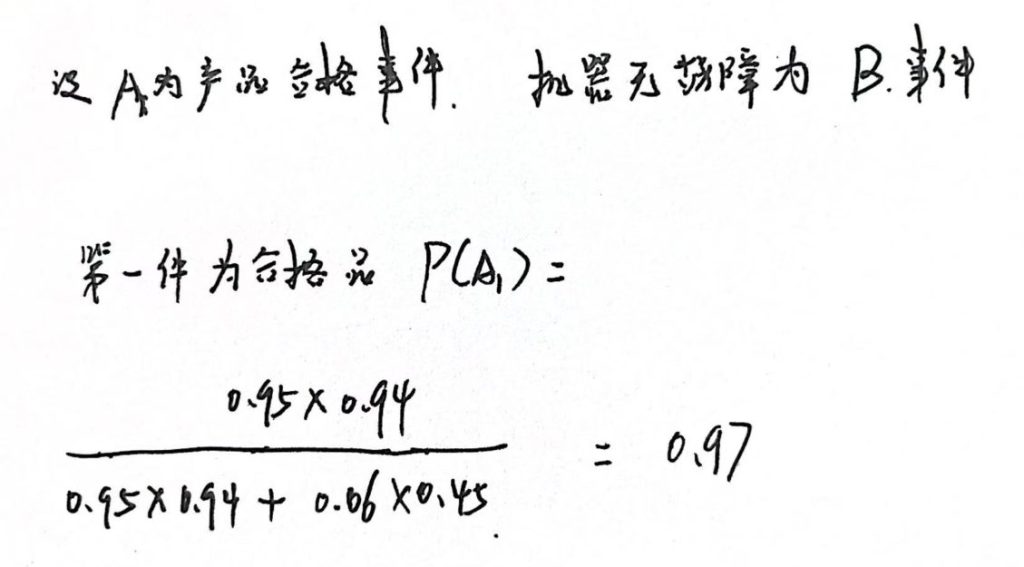 设 A₁为产品合格事件. 机器无故障为 B.事件
第一件为合格品 P(A₁) =
0.95×0.94
0.95×0.94 + 0.06×0.45 = 0.97